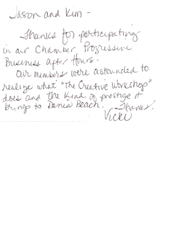 Jason and Kim -
Thanks for participating
in our Chamber Progressive
Business After Hours.
Our members were astounded to
realize what "The Creative Workshop"
does and the kind of prestige it
brings to Dania Beach.
Thanks!
Vicki